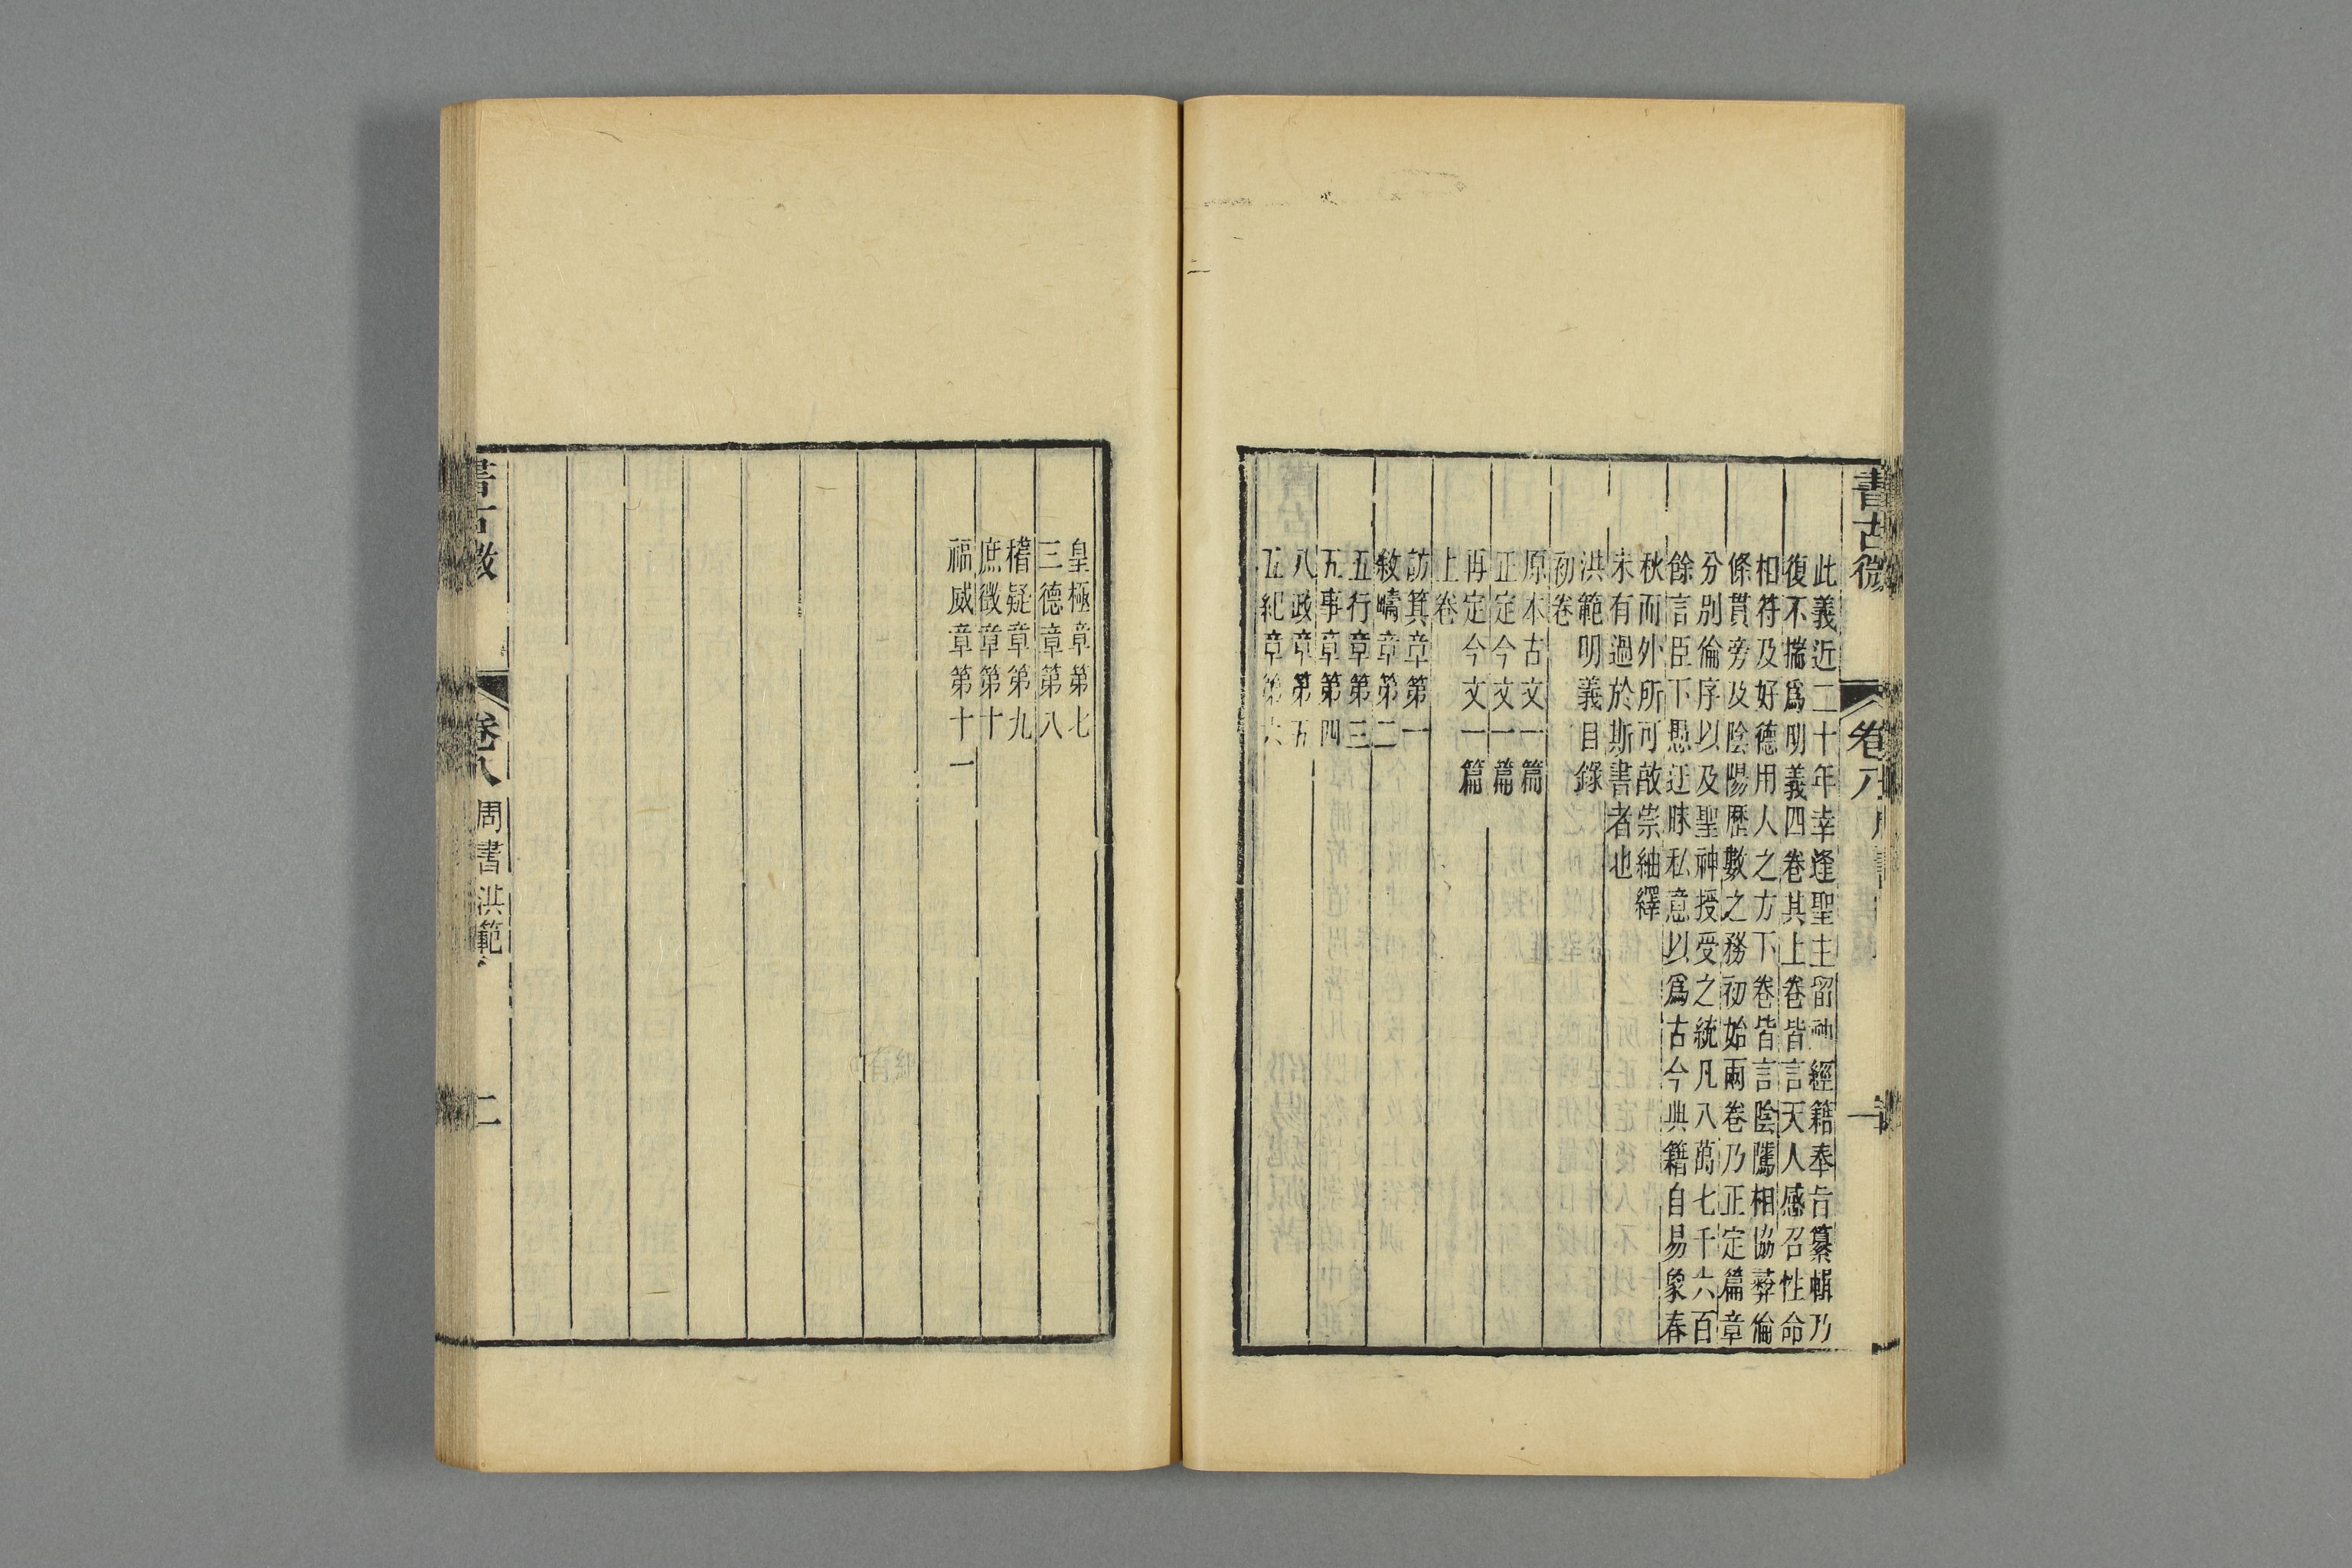 書古微
卷八
一
此義近二十年幸逢聖主留神經籍奉旨纂輯乃
復不揣爲明義四卷其上卷皆言天人感召性命
相符及好德用人之方下卷皆言陰隲相協彝倫
條貫旁及陰陽歷數之務初始兩卷乃正定篇章
分別倫序以及聖神授受之統凡八萬七千六百
餘言臣下愚迂昧私意以爲古今典籍自易象春
秋而外所可敢崇紬繹
未有過於斯書者也
洪範明義目錄
初卷
原本古文一篇
正定今文一篇
再定今文一篇
上卷
訪箕章第一
敘疇章第二
五行章第三
五事章第四
八政章第五
五紀章第六
皇極章第七
三德章第八
稽疑章第九
庶徵章第十
福威章第十一
書古微
卷八
周書 洪範
二